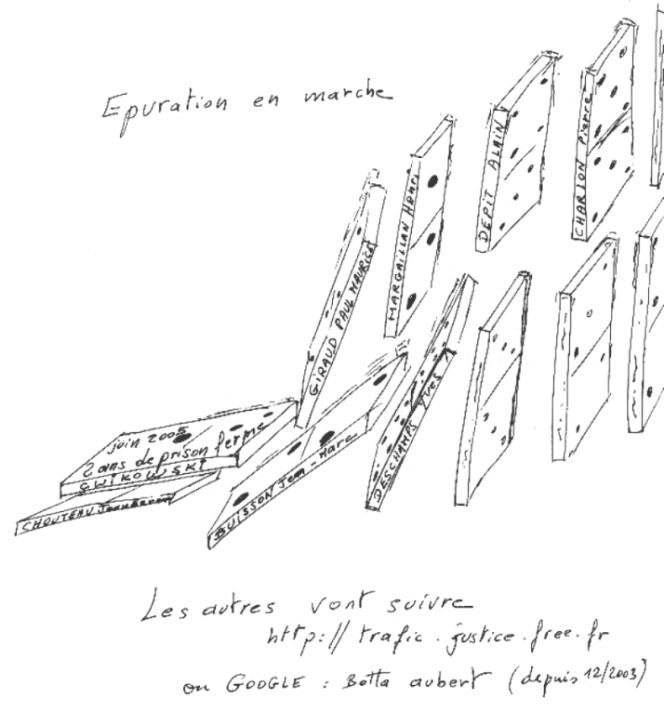 Epuration en marche
CHARLON Pierre
DEPIT ALAIN
MARGAILLAN Henri
GIRAUD PAUL MAURICE
DESCHAMPS Yves
BUISSON Jean-Marc
juin 2005
2 ans de prison ferme
CWIKOWSKI
CHOUTEAU
Les autres vont suivre
http://trafic.justice.free.fr
ou GOOGLE : Botta aubert (depuis 12/2003)